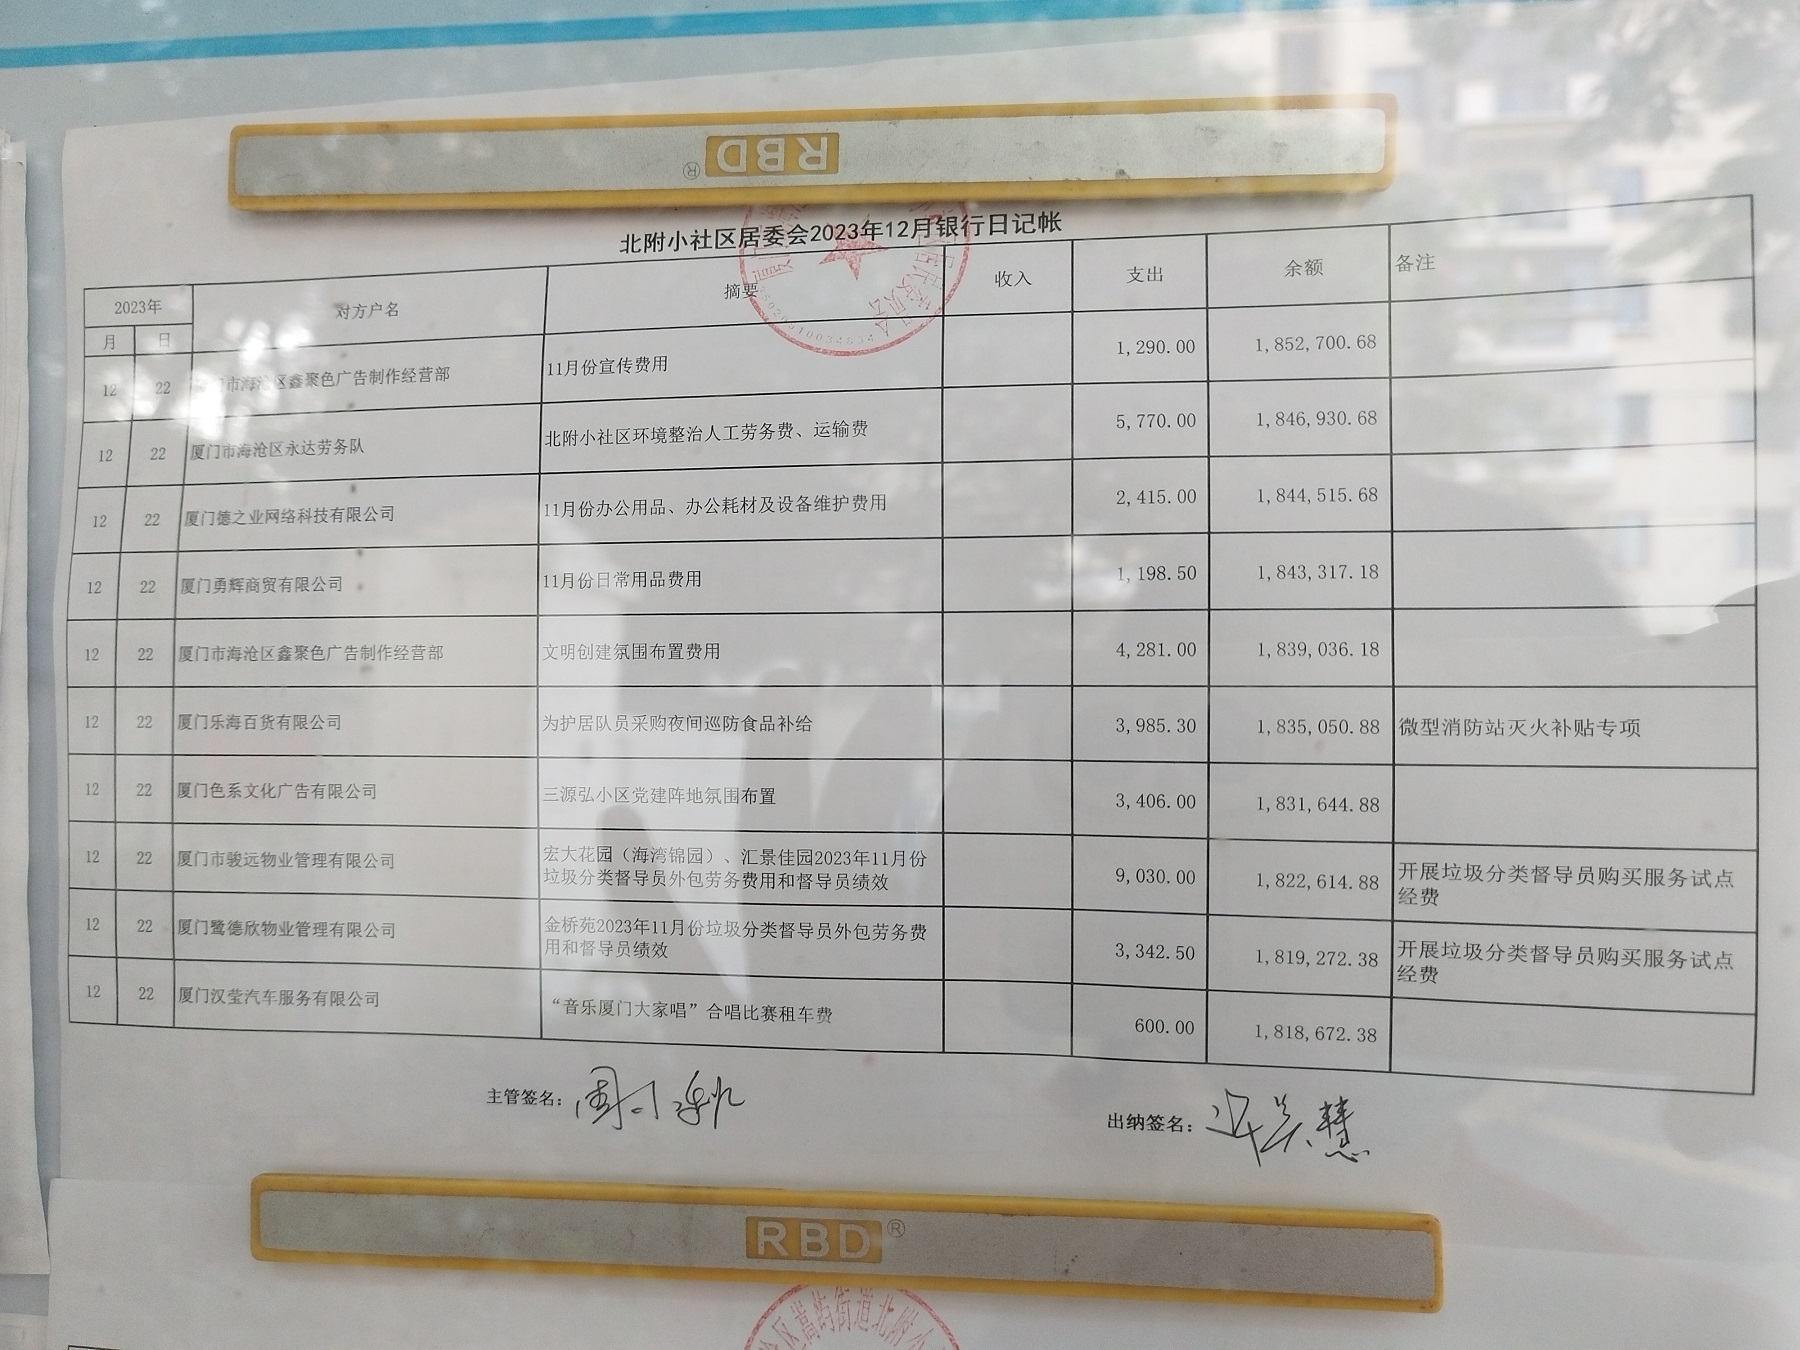 RBD®
北附小社区居委会2023年12月银行日记帐
2023年 对方户名 摘要 收入 支出 余额 备注
月 日
12 22 门市海沧区鑫聚色广告制作经营部 11月份宣传费用 1,290.00 1,852,700.68
12 22 厦门市海沧区永达劳务队 北附小社区环境整治人工劳务费、运输费 5,770.00 1,846,930.68
12 22 厦门德之业网络科技有限公司 11月份办公用品、办公耗材及设备维护费用 2,415.00 1,844,515.68
12 22 厦门勇辉商贸有限公司 11月份日常用品费用 1,198.50 1,843,317.18
12 22 厦门市海沧区鑫聚色广告制作经营部 文明创建氛围布置费用 4,281.00 1,839,036.18
12 22 厦门乐海百货有限公司 为护居队员采购夜间巡防食品补给 3,985.30 1,835,050.88 微型消防站灭火补贴专项
12 22 厦门色系文化广告有限公司 三源弘小区党建阵地氛围布置 3,406.00 1,831,644.88
12 22 厦门市骏远物业管理有限公司 宏大花园（海湾锦园）、汇景佳园2023年11月份
垃圾分类督导员外包劳务费用和督导员绩效 9,030.00 1,822,614.88 开展垃圾分类督导员购买服务试点
经费
12 22 厦门鹭德欣物业管理有限公司 金桥苑2023年11月份垃圾分类督导员外包劳务费
用和督导员绩效 3,342.50 1,819,272.38 开展垃圾分类督导员购买服务试点
经费
12 22 厦门汉莹汽车服务有限公司 “音乐厦门大家唱”合唱比赛租车费 600.00 1,818,672.38
主管签名：
出纳签名：
RBD®
区嵩屿街道北附小